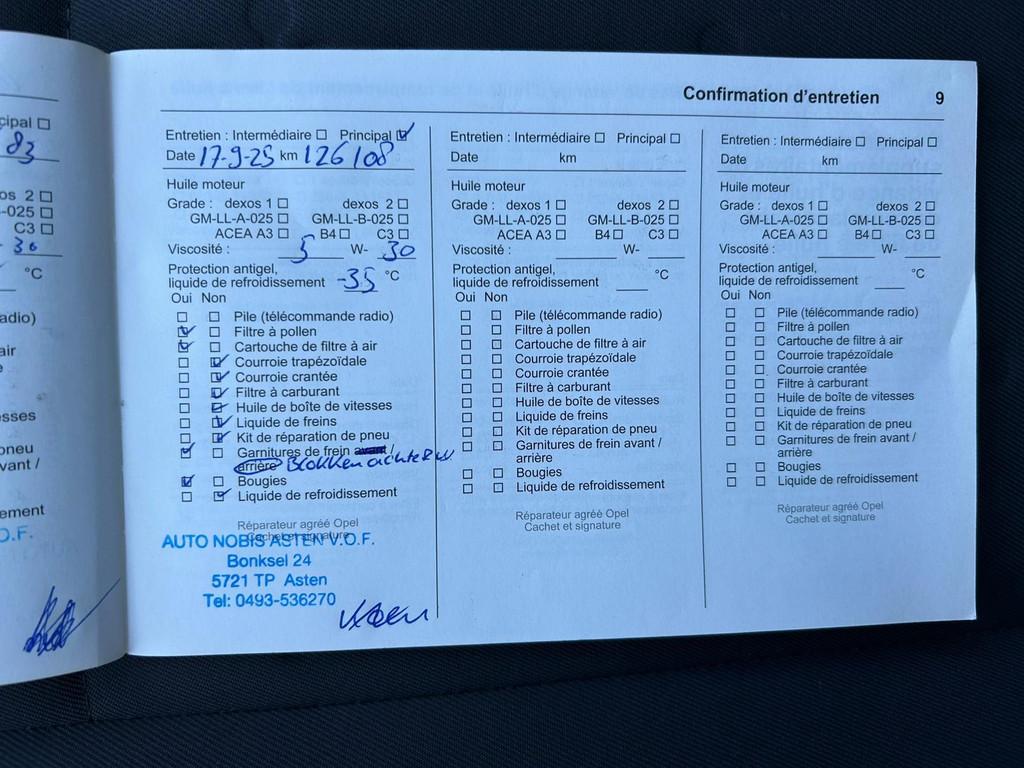 cipal ☐
83
os 2 ☐
-025 ☐
C3 ☐
30
°C
adio)
air
esses
pneu
vant /
ement
O.F.
Confirmation d'entretien 9
Entretien : Intermédiaire ☐ Principal ☑
Date 17-9-25 km 126108
Huile moteur
Grade : dexos 1 ☐ dexos 2 ☐
GM-LL-A-025 ☐ GM-LL-B-025 ☐
ACEA A3 ☐ B4 ☐ C3 ☐
Viscosité : 5 W- 30
Protection antigel,
liquide de refroidissement -35 °C
Oui Non
☐ ☐ Pile (télécommande radio)
☑ ☐ Filtre à pollen
☑ ☐ Cartouche de filtre à air
☐ ☑ Courroie trapézoïdale
☐ ☑ Courroie crantée
☐ ☑ Filtre à carburant
☐ ☑ Huile de boîte de vitesses
☐ ☑ Liquide de freins
☐ ☑ Kit de réparation de pneu
☑ ☐ Garnitures de frein avant /
arrière Blokken achter
☑ ☐ Bougies
☐ ☑ Liquide de refroidissement
Réparateur agréé Opel
Cachet et signature
AUTO NOBIS ASTEN V.O.F.
Bonksel 24
5721 TP Asten
Tel: 0493-536270
Entretien : Intermédiaire ☐ Principal ☐
Date km
Huile moteur
Grade : dexos 1 ☐ dexos 2 ☐
GM-LL-A-025 ☐ GM-LL-B-025 ☐
ACEA A3 ☐ B4 ☐ C3 ☐
Viscosité : W-
Protection antigel,
liquide de refroidissement °C
Oui Non
☐ ☐ Pile (télécommande radio)
☐ ☐ Filtre à pollen
☐ ☐ Cartouche de filtre à air
☐ ☐ Courroie trapézoïdale
☐ ☐ Courroie crantée
☐ ☐ Filtre à carburant
☐ ☐ Huile de boîte de vitesses
☐ ☐ Liquide de freins
☐ ☐ Kit de réparation de pneu
☐ ☐ Garnitures de frein avant /
arrière
☐ ☐ Bougies
☐ ☐ Liquide de refroidissement
Réparateur agréé Opel
Cachet et signature
Entretien : Intermédiaire ☐ Principal ☐
Date km
Huile moteur
Grade : dexos 1 ☐ dexos 2 ☐
GM-LL-A-025 ☐ GM-LL-B-025 ☐
ACEA A3 ☐ B4 ☐ C3 ☐
Viscosité : W-
Protection antigel,
liquide de refroidissement °C
Oui Non
☐ ☐ Pile (télécommande radio)
☐ ☐ Filtre à pollen
☐ ☐ Cartouche de filtre à air
☐ ☐ Courroie trapézoïdale
☐ ☐ Courroie crantée
☐ ☐ Filtre à carburant
☐ ☐ Huile de boîte de vitesses
☐ ☐ Liquide de freins
☐ ☐ Kit de réparation de pneu
☐ ☐ Garnitures de frein avant /
arrière
☐ ☐ Bougies
☐ ☐ Liquide de refroidissement
Réparateur agréé Opel
Cachet et signature